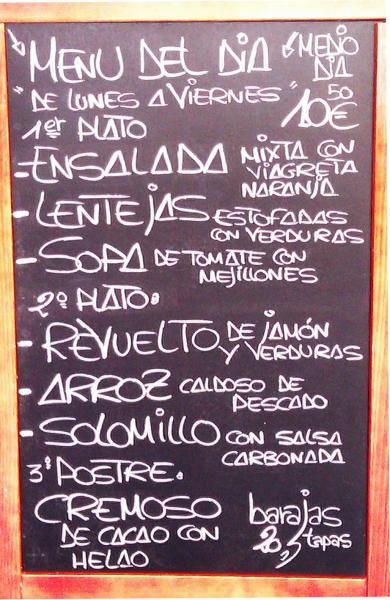 MENU DEL DIA MEDIO DIA
"DE LUNES A VIERNES" 10,50€
1er PLATO
-ENSALADA MIXTA CON VIAGRETA NARANJA
-LENTEJAS ESTOFADAS CON VERDURAS
-SOPA DE TOMATE CON MEJILLONES
2º PLATO.
-REVUELTO DE JAMÓN Y VERDURAS
-ARROZ CALDOSO DE PESCADO
-SOLOMILLO CON SALSA CARBONADA
3º POSTRE.
CREMOSO
DE CACAO CON
HELAO
barajas
tapas